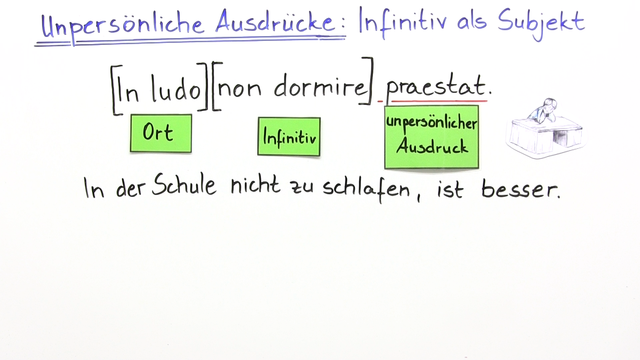 Unpersönliche Ausdrücke: Infinitiv als Subjekt
[In ludo][non dormire] praestat.
Ort
Infinitiv
unpersönlicher
Ausdruck
In der Schule nicht zu schlafen, ist besser.